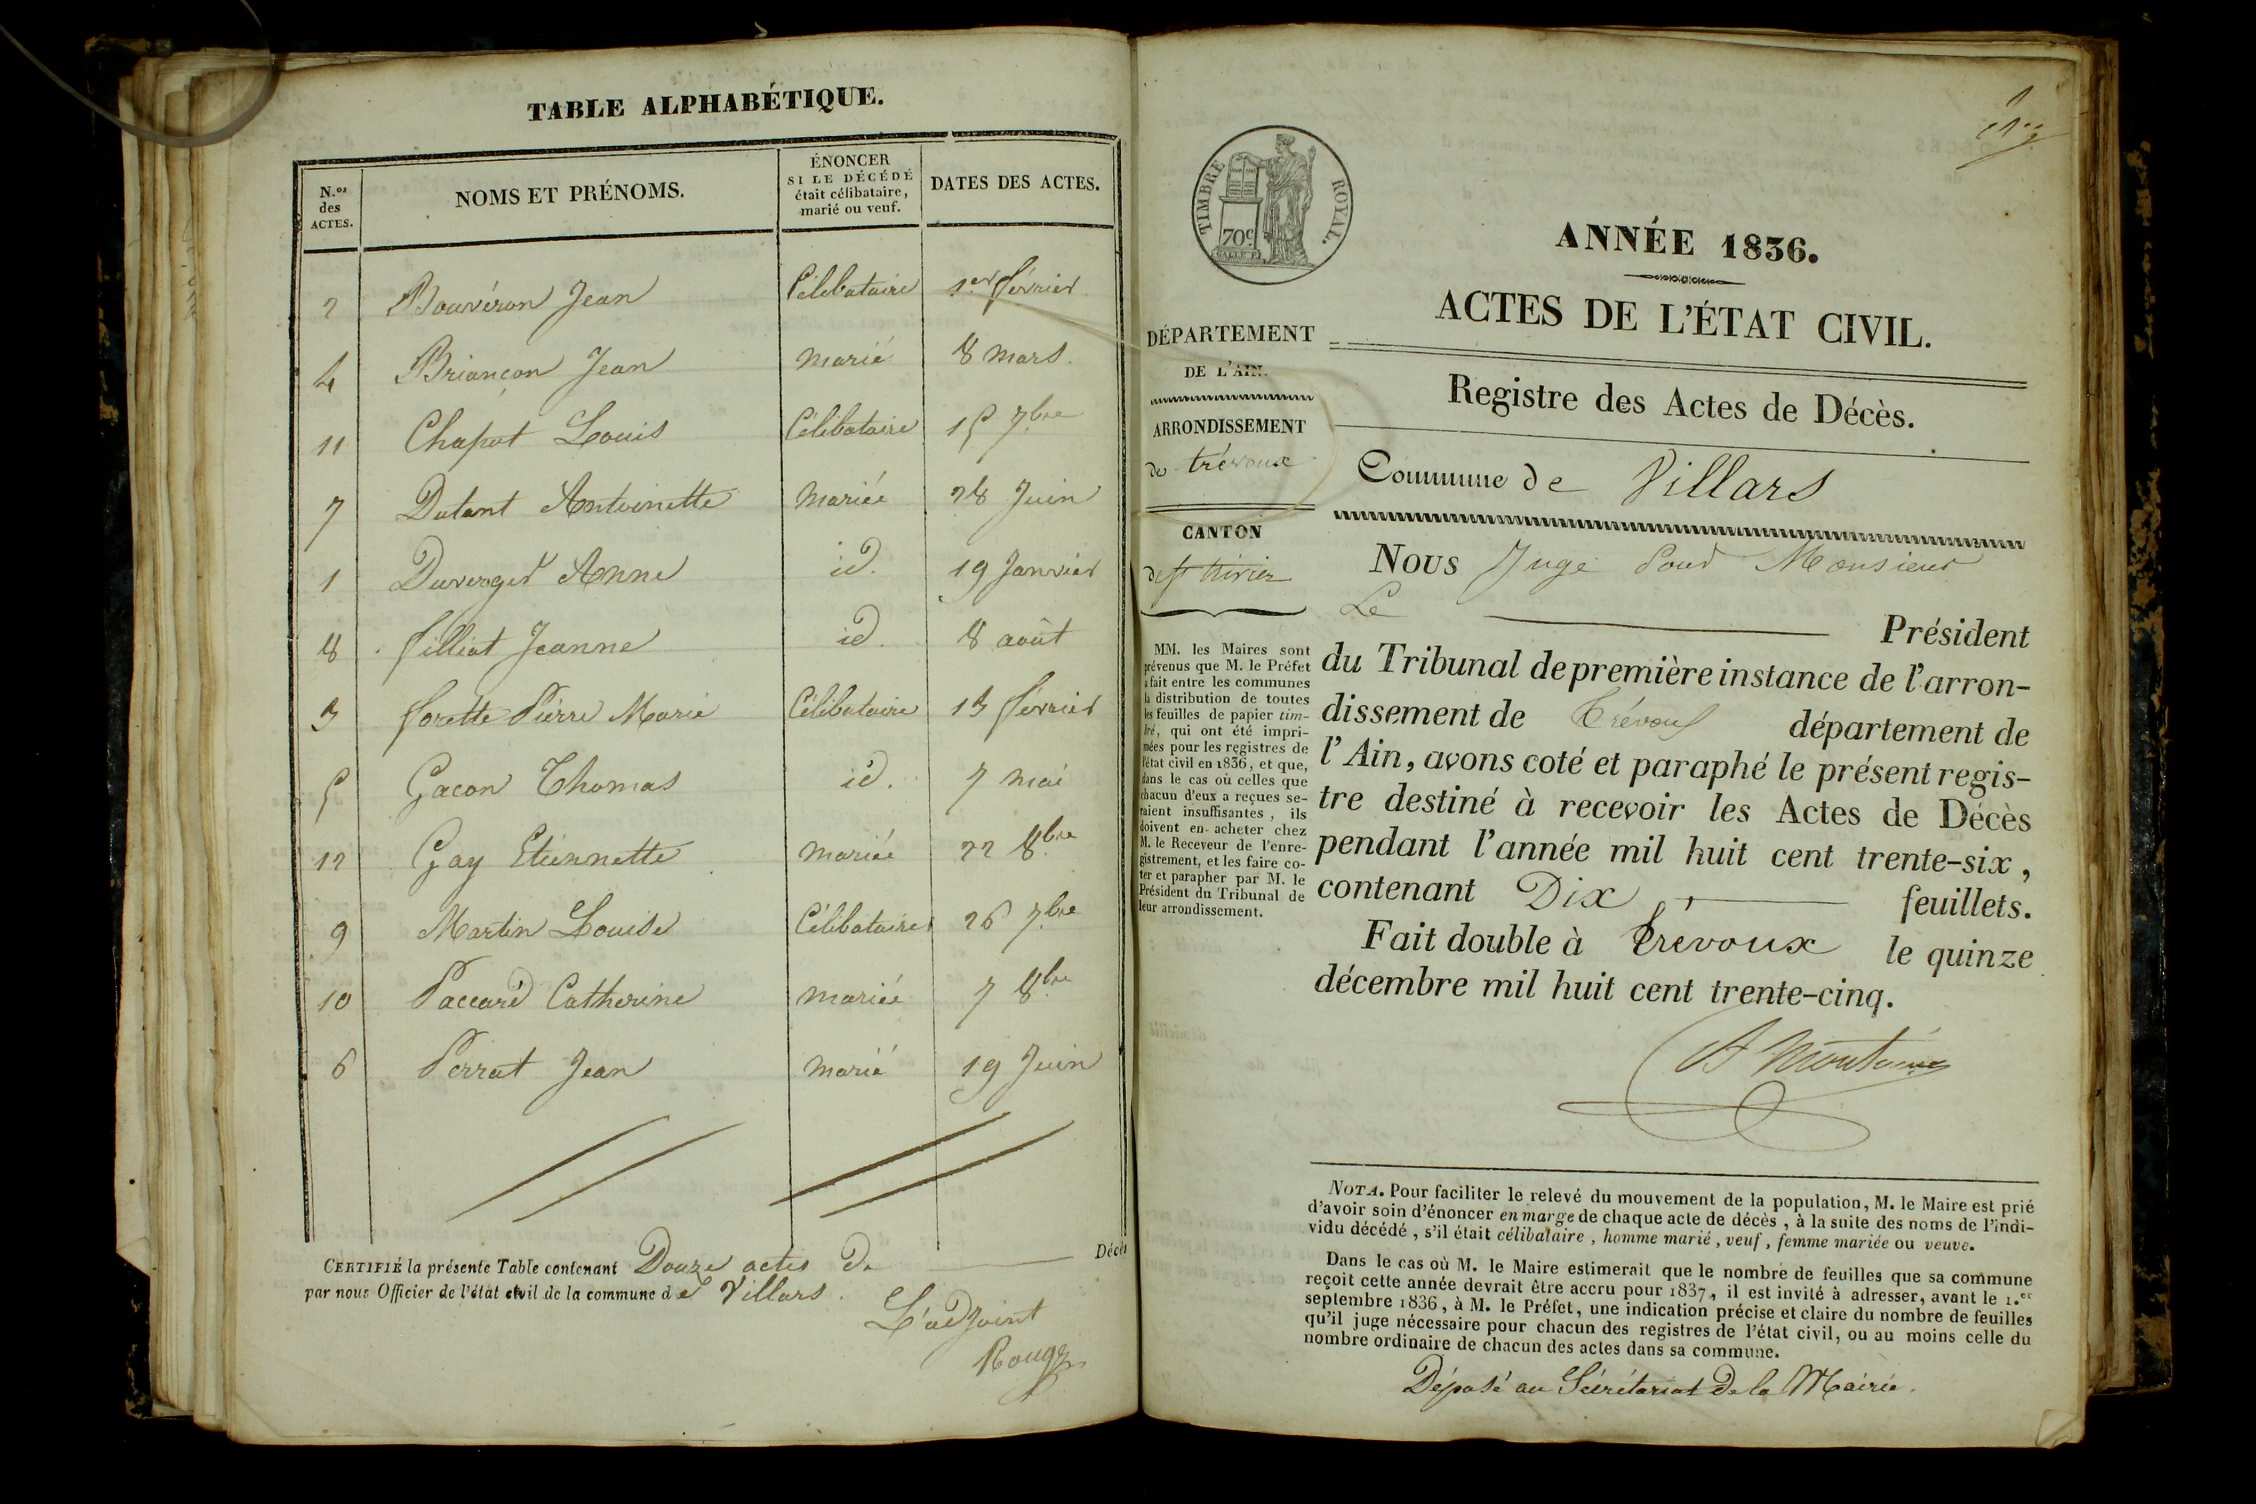 TABLE ALPHABÉTIQUE.
N.os des ACTES. NOMS ET PRÉNOMS. ÉNONCER SI LE DÉCÉDÉ était célibataire, marié ou veuf. DATES DES ACTES.
2 Bouvéron Jean Célibataire 1er février
4 Briançon Jean marié 8 mars
11 Chapot Louis Célibataire 15 7bre
7 Dutant Antoinette mariée 28 Juin
1 Duverger Anne id. 19 Janvier
8 filliat Jeanne id. 8 août
3 forette Pierre Marie Célibataire 13 février
5 Gacon Thomas id. 7 mai
12 Gay Etiennette mariée 22 8bre
9 Martin Louise Célibataire 26 7bre
10 Paccard Catherine mariée 7 8bre
6 Perrat Jean marié 19 Juin
CERTIFIÉ la présente Table contenant Douze actes de Décès
par nous Officier de l'état civil de la commune de Villars.
L'adjoint
Rouger
TIMBRE ROYAL.
70c
ANNÉE 1836.
ACTES DE L'ÉTAT CIVIL.
DÉPARTEMENT
DE L'AIN.
ARRONDISSEMENT
de trévoux
CANTON
de st trivier
MM. les Maires sont
prévenus que M. le Préfet
a fait entre les communes
la distribution de toutes
les feuilles de papier tim-
bré, qui ont été impri-
mées pour les registres de
l'état civil en 1836, et que,
dans le cas où celles que
chacun d'eux a reçues se-
raient insuffisantes, ils
doivent en acheter chez
M. le Receveur de l'enre-
gistrement, et les faire co-
ter et parapher par M. le
Président du Tribunal de
leur arrondissement.
Registre des Actes de Décès.
Commune de Villars
Nous Juge Pour Monsieur
Le Président
du Tribunal de première instance de l'arron-
dissement de Trévoux département de
l'Ain, avons coté et paraphé le présent regis-
tre destiné à recevoir les Actes de Décès
pendant l'année mil huit cent trente-six,
contenant Dix feuillets.
Fait double à Trévoux le quinze
décembre mil huit cent trente-cinq.
NOTA. Pour faciliter le relevé du mouvement de la population, M. le Maire est prié
d'avoir soin d'énoncer en marge de chaque acte de décès, à la suite des noms de l'indi-
vidu décédé, s'il était célibataire, homme marié, veuf, femme mariée ou veuve.
Dans le cas où M. le Maire estimerait que le nombre de feuilles que sa commune
reçoit cette année devrait être accru pour 1837, il est invité à adresser, avant le 1.er
septembre 1836, à M. le Préfet, une indication précise et claire du nombre de feuilles
qu'il juge nécessaire pour chacun des registres de l'état civil, ou au moins celle du
nombre ordinaire de chacun des actes dans sa commune.
Déposé au Sécrétariat de la Mairie.